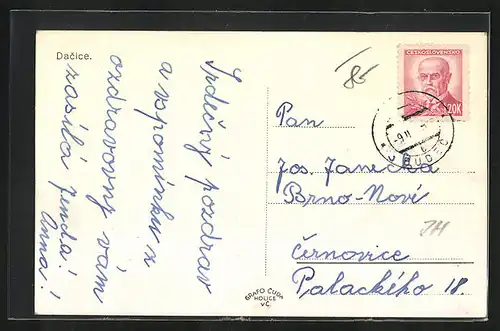 Dačice.
Srdečný pozdrav
a vzpomínku z
ozdravovny vám
zasílá Jenda!
Anna!
/85
ČESKOSLOVENSKO
1.20K
Pan
Jos. Janečka
Brno-Nové
Černovice
Palackého 18.
GRAFO ČUDA
HOLICE
v Č.